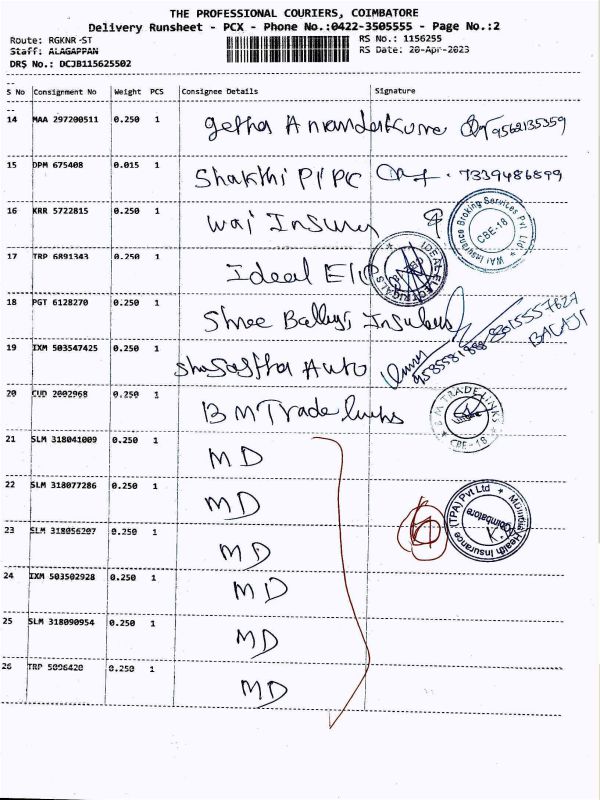 THE PROFESSIONAL COURIERS, COIMBATORE
Delivery Runsheet - PCX - Phone No.:0422-3505555 - Page No.:2
Route: RGKNR-ST RS No.: 1156255
Staff: ALAGAPPAN RS Date: 20-Apr-2023
DRS No.: DCJB115625502
S No Consignment No Weight PCS Consignee Details Signature
14 MAA 297200511 0.250 1 9562135359
15 DPM 675408 0.015 1 Shakthi P/PC 7339486899
16 KRR 5722815 0.250 1 Wai Insurn
WAI Insurance Broking Services Pvt Ltd
CBE-18
17 TRP 6891343 0.250 1 Ideal
IDEAL ELECTRICALS
18 PGT 6128270 0.250 1 Shree
BALAJI
19 IXM 503547425 0.250 1 Auto
20 CUD 2002968 0.250 1 BM Trade links
B M TRADE LINKS
CBE-18
21 SLM 318041009 0.250 1 MD
22 SLM 318077286 0.250 1 MD
6
MDIndia Health Insurance (TPA) Pvt Ltd
Coimbatore
K.
23 SLM 318056207 0.250 1 MD
24 IXM 503502928 0.250 1 MD
25 SLM 318090954 0.250 1 MD
26 TRP 5096420 0.250 1 MD